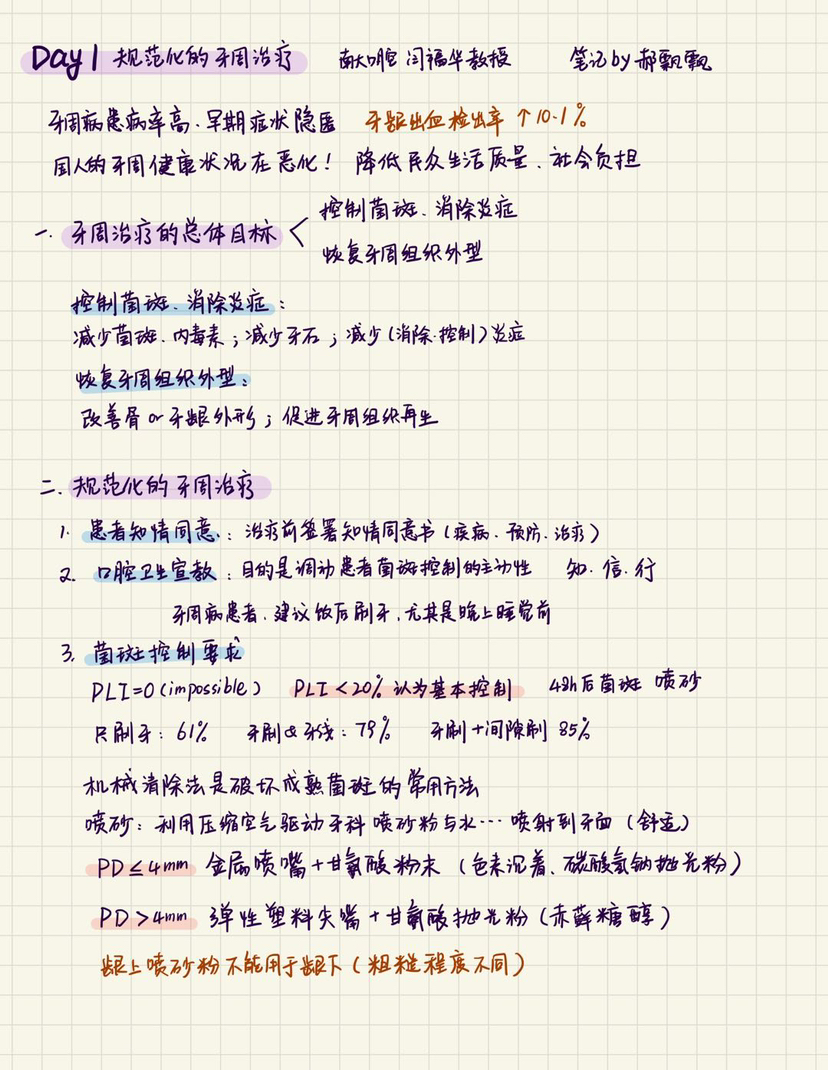 Day 1 规范化的牙周治疗 南大口腔 闫福华教授 笔记by郝飘飘
牙周病患病率高、早期症状隐匿 牙龈出血检出率 ↑10.1%
国人的牙周健康状况在恶化! 降低民众生活质量、社会负担
一. 牙周治疗的总体目标 < 控制菌斑、消除炎症
恢复牙周组织外型
控制菌斑、消除炎症:
减少菌斑、内毒素;减少牙石;减少(消除·控制)炎症
恢复牙周组织外型:
改善骨 or 牙龈外形;促进牙周组织再生
二. 规范化的牙周治疗
1. 患者知情同意:治疗前签署知情同意书(疾病、预防、治疗)
2. 口腔卫生宣教:目的是调动患者菌斑控制的主动性 知、信、行
牙周病患者、建议饭后刷牙、尤其是晚上睡觉前
3. 菌斑控制要求
PLI=0(impossible) PLI<20%认为基本控制 48h后菌斑 喷砂
只刷牙:61% 牙刷&牙线:79% 牙刷+间隙刷 85%
机械清除法是破坏成熟菌斑的常用方法
喷砂:利用压缩空气驱动牙科喷砂粉与水…喷射到牙面(舒适)
PD≤4mm 金属喷嘴+甘氨酸粉末(色素沉着、碳酸氢钠抛光粉)
PD>4mm 弹性塑料尖嘴+甘氨酸抛光粉(赤藓糖醇)
龈上喷砂粉不能用于龈下(粗糙程度不同)